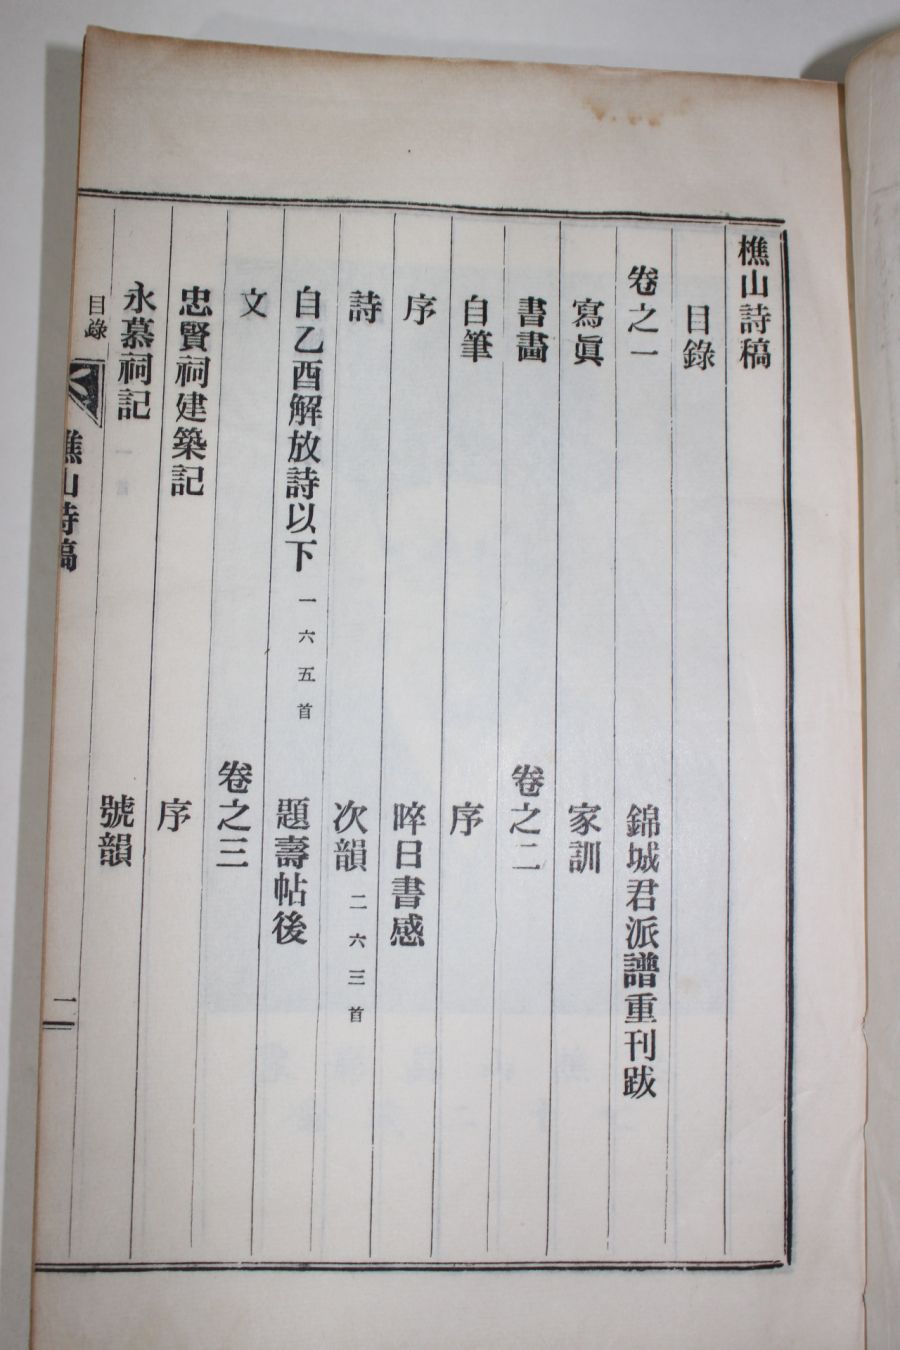 樵山詩稿
目錄
卷之一
錦城君派譜重刊跋
寫眞
家訓
書畵
卷之二
自筆
序
序
晬日書感
詩
次韻 二六三首
自乙酉解放詩以下 一六五首
題壽帖後
文
卷之三
忠賢祠建築記
序
永慕祠記
號韻
目錄
樵山詩稿
二